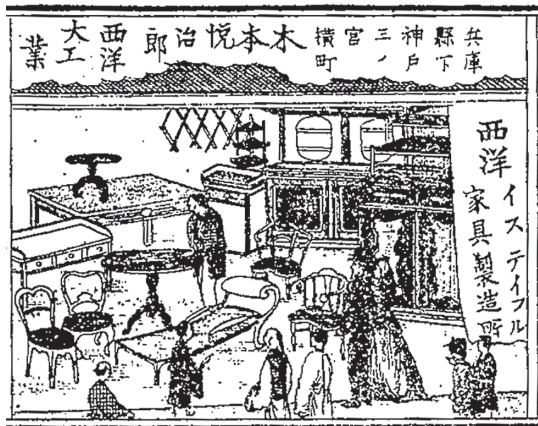 兵庫
縣下
神戸
三ノ
宮
横町
木本悦治
郎
西洋
大工
業
西洋
イス テイフル
家具製造所